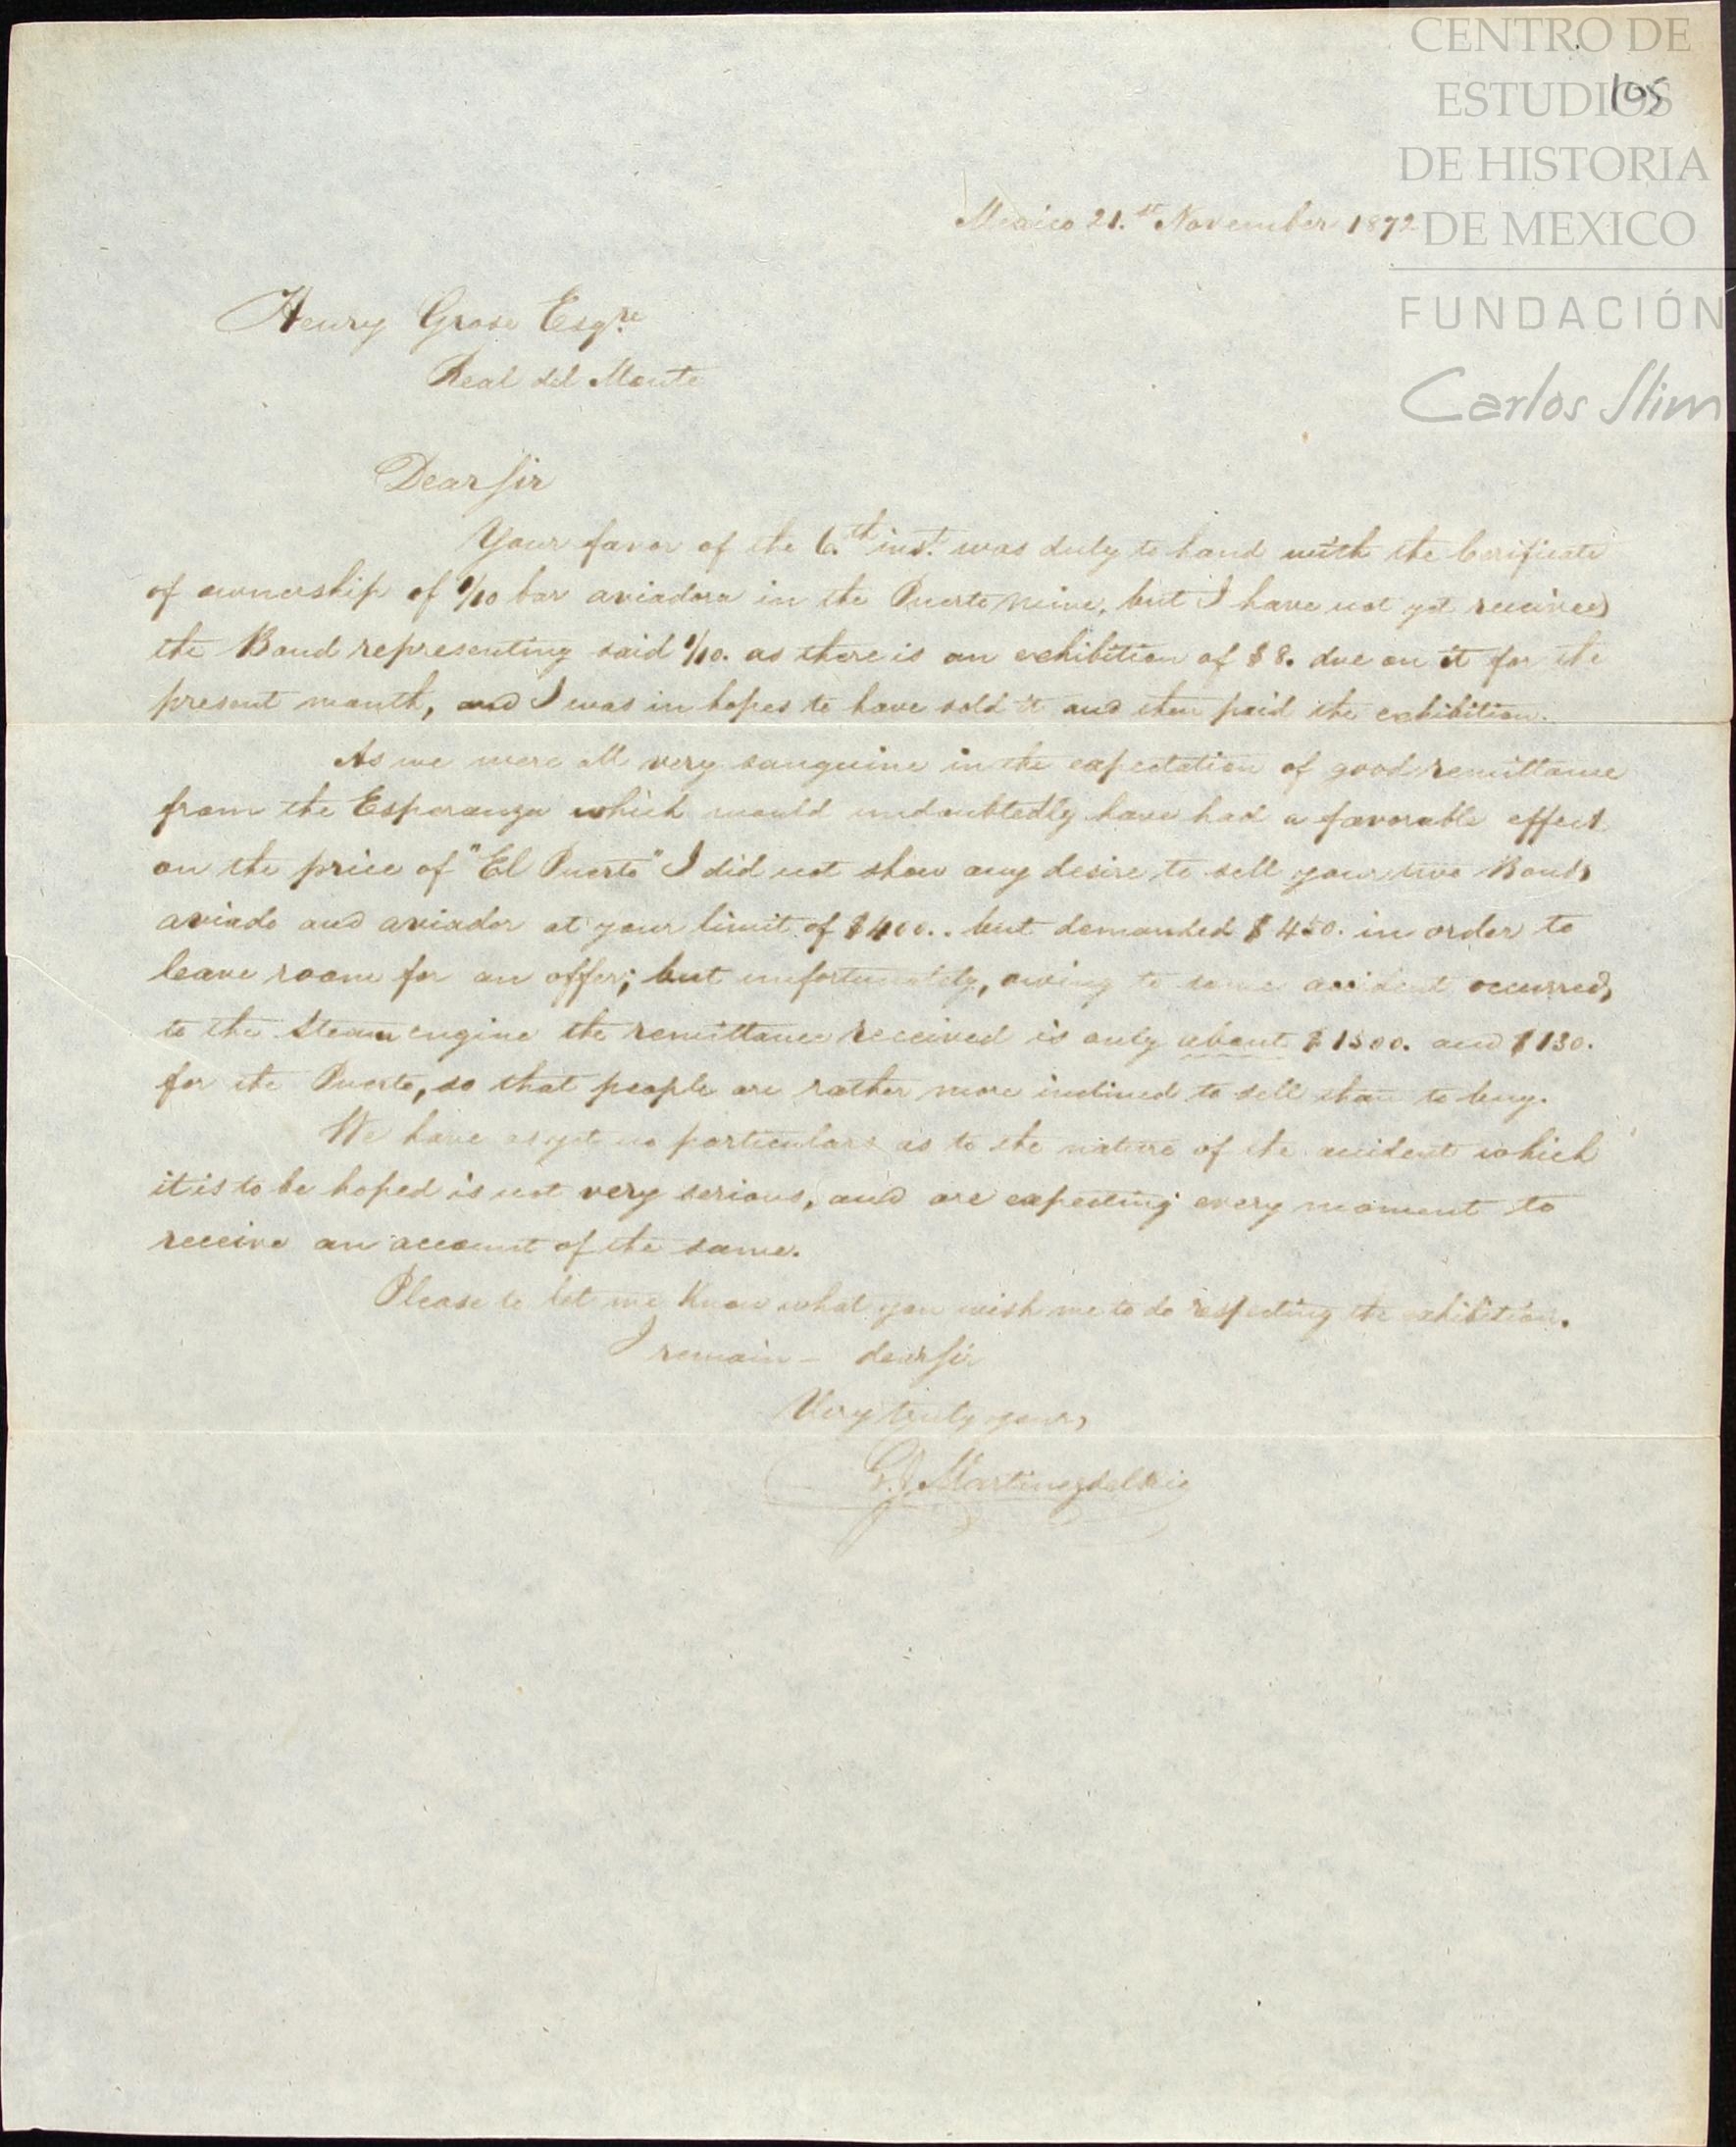 CENTRO DE
ESTUDIOS
105
DE HISTORIA
DE MEXICO
FUNDACIÓN
Carlos Slim
Mexico 21.st November 1872
Henry Grose Esqre
Real del Monte
Dear Sir
Your favor of the 6.th inst. was duly to hand with the Cerificate
of ownership of 1/10 bar aviadora in the Puerto mine, but I have not yet received
the Bond representing said 1/10. as there is an exhibition of $8. due on it for the
present month, and I was in hopes to have sold it and then paid the exhibition.
As we were all very sanguine in the expectation of good remittance
from the Esperanza which would undoubtedly have had a favorable effect
on the price of "El Puerto" I did not show any desire to sell your two Bonds
aviado and aviador at your limit of $400.. but demanded $450. in order to
leave room for an offer; but unfortunately, owing to some accident occurred,
to the Steam engine the remittance received is only about $1500. and $130.
for the Puerto, so that people are rather more inclined to sell than to buy.
We have as yet no particulars as to the nature of the accident which
it is to be hoped is not very serious, and are expecting every moment to
receive an account of the same.
Please to let me know what you wish me to do respecting the exhibition.
I remain - dear Sir
Very truly yours,
Martinez del Rio